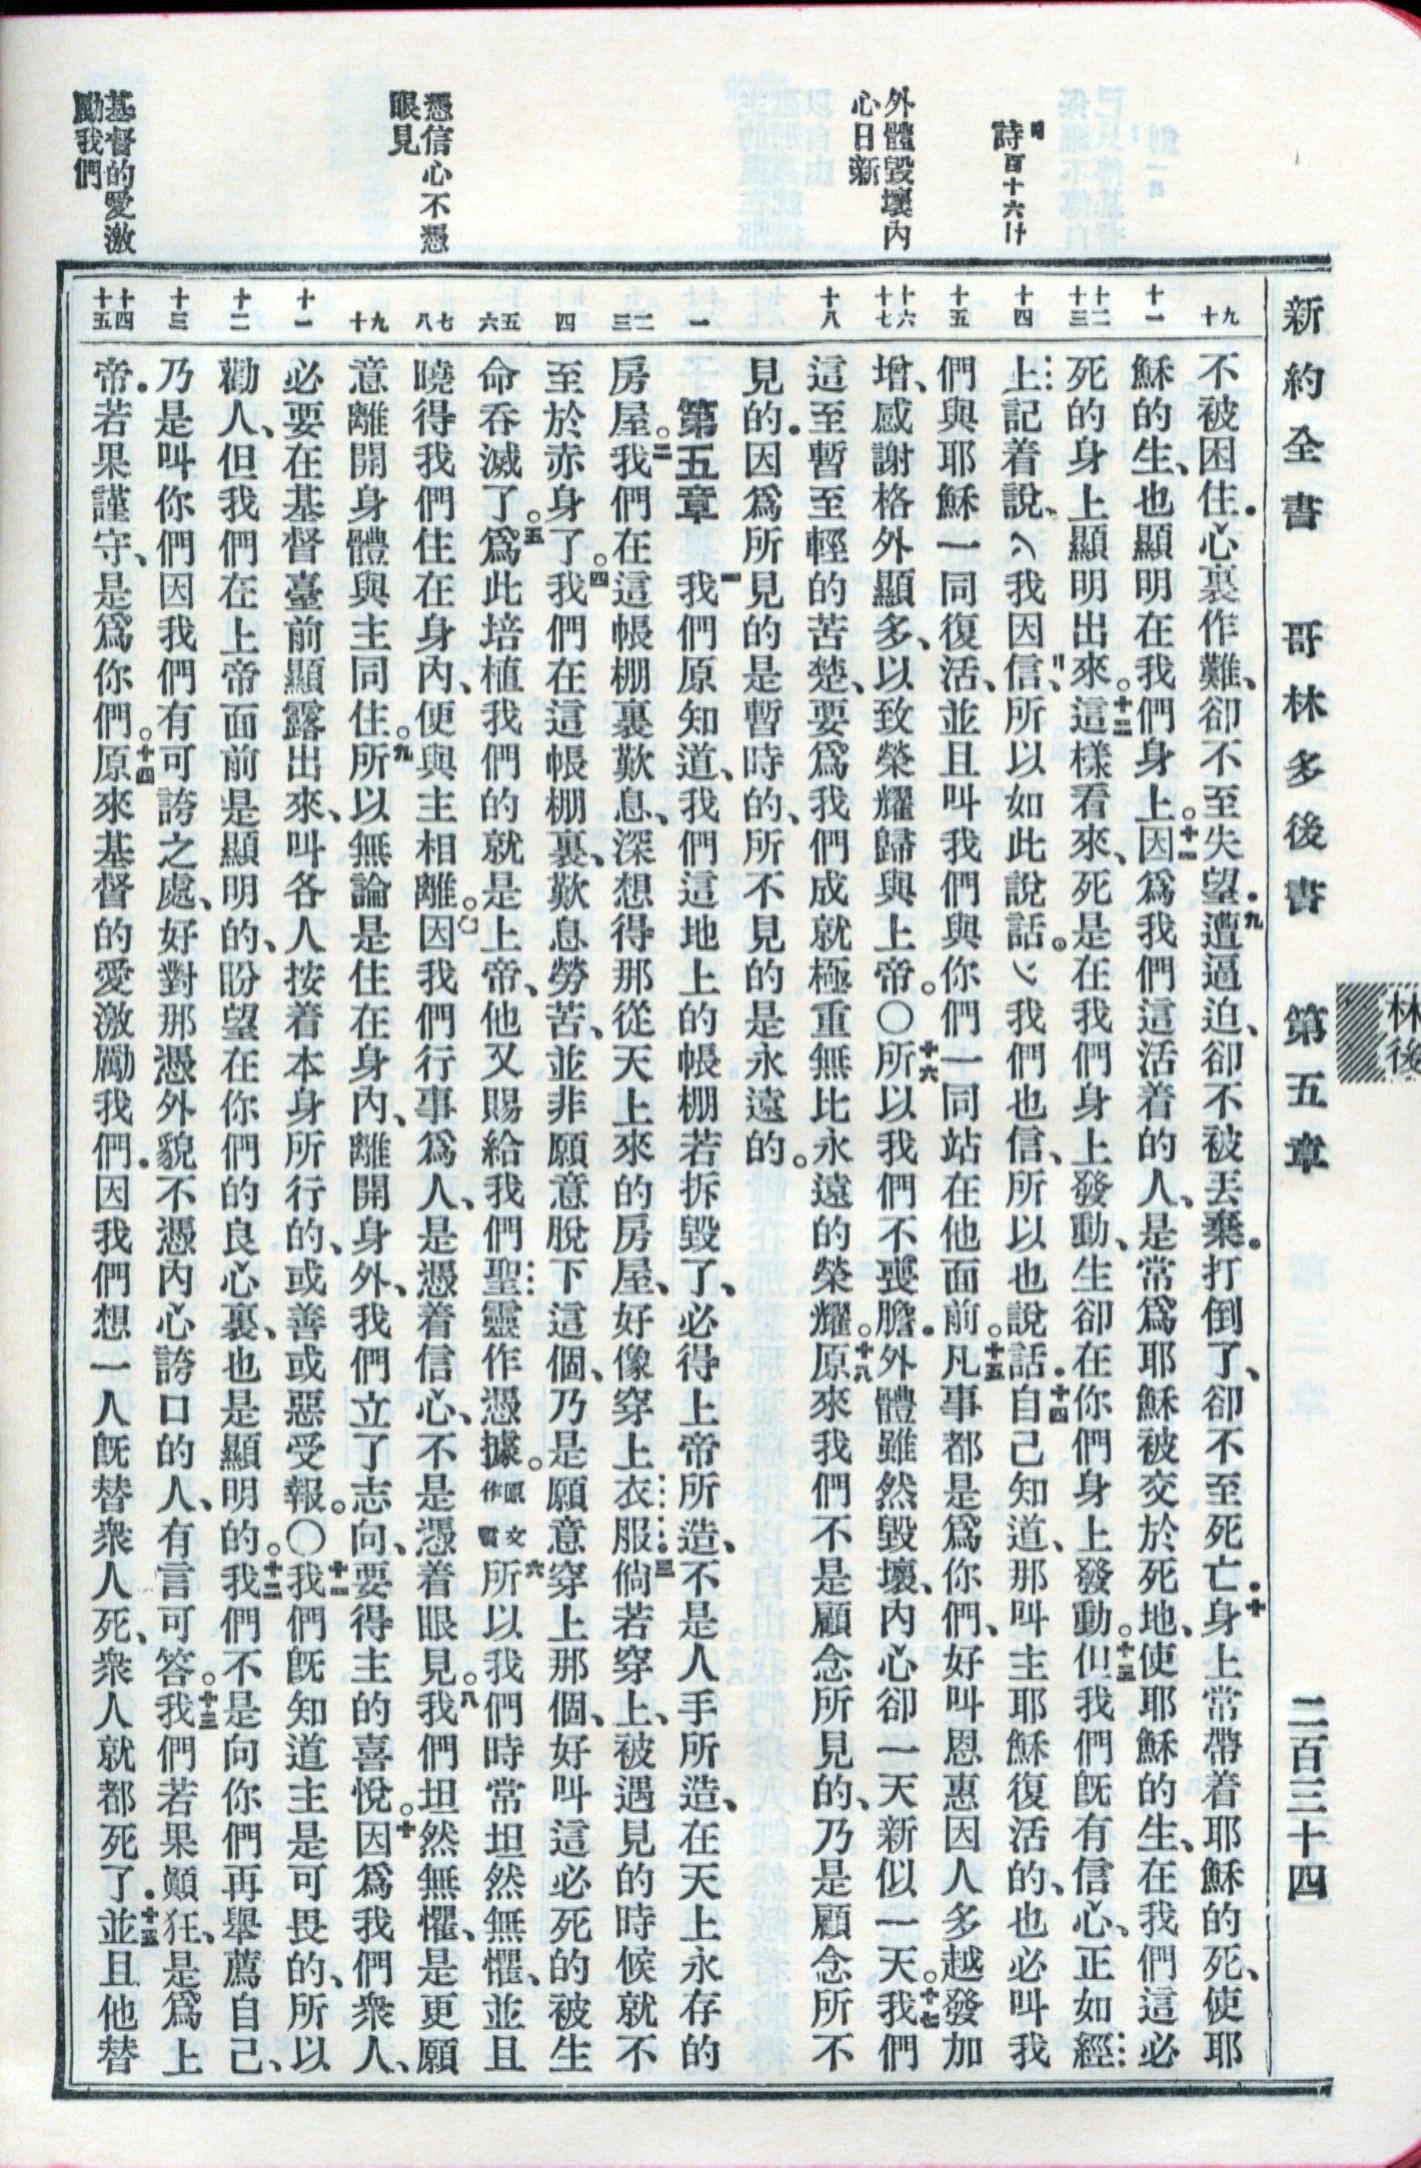 新約全書　哥林多後書　第五章　二百三十四
林後
詩百十六
外體毀壞內
心日新
憑信心不憑
眼見
基督的愛激
勵我們
九
十
十一
十二
十三
十四
十五
十六
十七
十八
一
二
三
四
五
六
七
八
九
十
十一
十二
十三
十四
十五
不被困住．心裏作難、卻不至失望．九遭逼迫、卻不被丟棄．打倒了、卻不至死亡．十身上常帶着耶穌的死、使耶
穌的生、也顯明在我們身上。十一因爲我們這活着的人、是常爲耶穌被交於死地、使耶穌的生、在我們這必
死的身上顯明出來。十二這樣看來、死是在我們身上發動、生卻在你們身上發動。十三但我們旣有信心、正如經
上記着說、我因信、所以如此說話。我們也信、所以也說話．十四自己知道、那叫主耶穌復活的、也必叫我
們與耶穌一同復活、並且叫我們與你們一同站在他面前。十五凡事都是爲你們、好叫恩惠因人多越發加
增、感謝格外顯多、以致榮耀歸與上帝。〇十六所以我們不喪膽．外體雖然毀壞、內心卻一天新似一天。十七我們
這至暫至輕的苦楚、要爲我們成就極重無比永遠的榮耀。十八原來我們不是顧念所見的、乃是顧念所不
見的．因爲所見的是暫時的、所不見的是永遠的。
第五章　一我們原知道、我們這地上的帳棚若拆毀了、必得上帝所造、不是人手所造、在天上永存的
房屋。二我們在這帳棚裏歎息、深想得那從天上來的房屋、好像穿上衣服．三倘若穿上、被遇見的時候就不
至於赤身了。四我們在這帳棚裏、歎息勞苦、並非願意脫下這個、乃是願意穿上那個、好叫這必死的被生
命吞滅了。五爲此培植我們的就是上帝、他又賜給我們聖靈作憑據。原文作質六所以我們時常坦然無懼、並且
曉得我們住在身內、便與主相離。七因我們行事爲人、是憑着信心、不是憑着眼見。八我們坦然無懼、是更願
意離開身體與主同住。九所以無論是住在身內、離開身外、我們立了志向、要得主的喜悅。十因爲我們衆人、
必要在基督臺前顯露出來、叫各人按着本身所行的、或善或惡受報。〇十一我們旣知道主是可畏的、所以
勸人、但我們在上帝面前是顯明的、盼望在你們的良心裏、也是顯明的。十二我們不是向你們再舉薦自己、
乃是叫你們因我們有可誇之處、好對那憑外貌不憑內心誇口的人、有言可答。十三我們若果顚狂、是爲上
帝．若果謹守、是爲你們。十四原來基督的愛激勵我們．因我們想一人旣替衆人死、衆人就都死了．十五並且他替